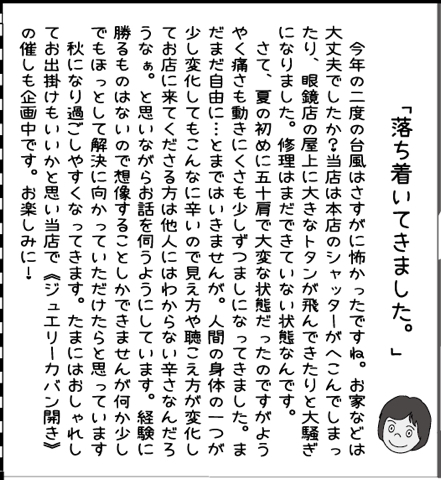 「落ち着いてきました。」
今年の二度の台風はさすがに怖かったですね。お家などは
大丈夫でしたか？当店は本店のシャッターがへこんでしまっ
たり、眼鏡店の屋上に大きなトタンが飛んできたりと大騒ぎ
になりました。修理はまだできていない状態なんです。
さて、夏の初めに五十肩で大変な状態だったのですがよう
やく痛さも動きにくさも少しずつましになってきました。ま
だまだ自由に…とまではいきませんが。人間の身体の一つが
少し変化してもこんなに辛いので見え方や聴こえ方が変化し
てお店に来てくださる方は他人にはわからない辛さなんだろ
うなぁ。と思いながらお話を伺うようにしています。経験に
勝るものはないので想像することしかできませんが何か少し
でもほっとして解決に向かっていただけたらと思っています
秋になり過ごしやすくなってきます。たまにはおしゃれし
てお出掛けもいいかと思い当店で《ジュエリーカバン開き》
の催しも企画中です。お楽しみに！